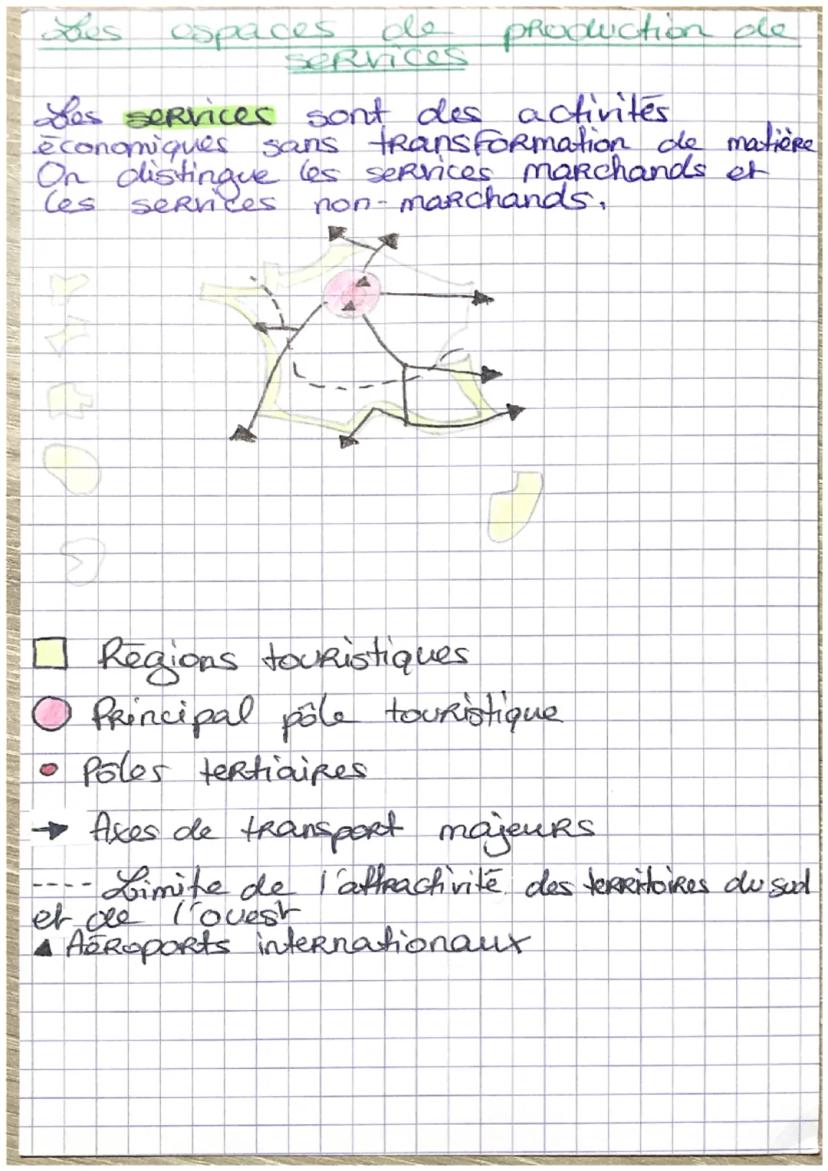 Les espaces de production de
services
Les services sont des activités
économiques sans transformation de matière
On distingue les services marchands et
les services non-marchands.
Régions touristiques
Principal pôle touristique
Pôles tertiaires
Axes de transport majeurs
Limite de l'attractivité des territoires du sud
et de l'ouest
Aéroports internationaux